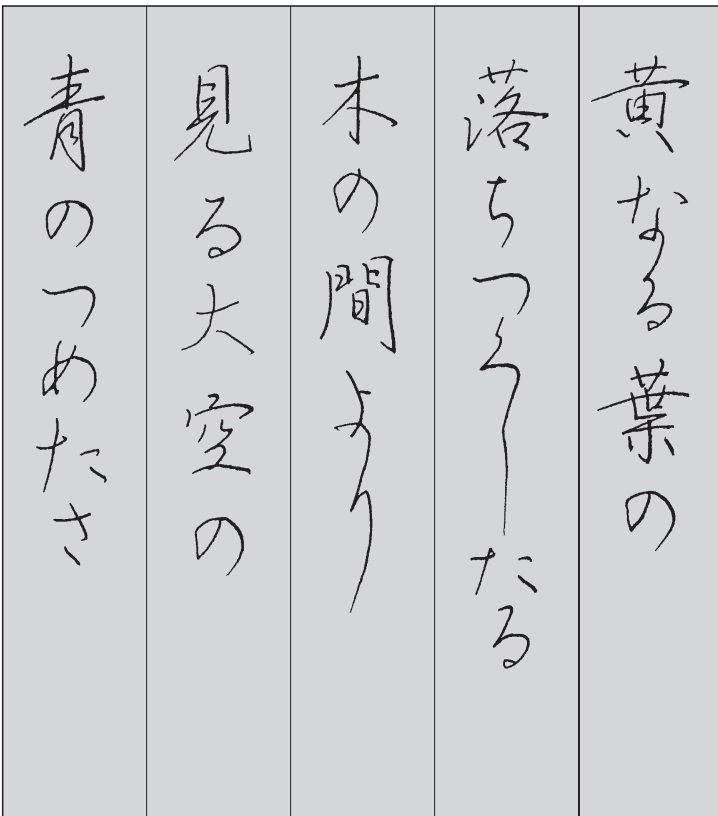 黄なる葉の
落ちつくしたる
木の間より
見る大空の
青のつめたさ